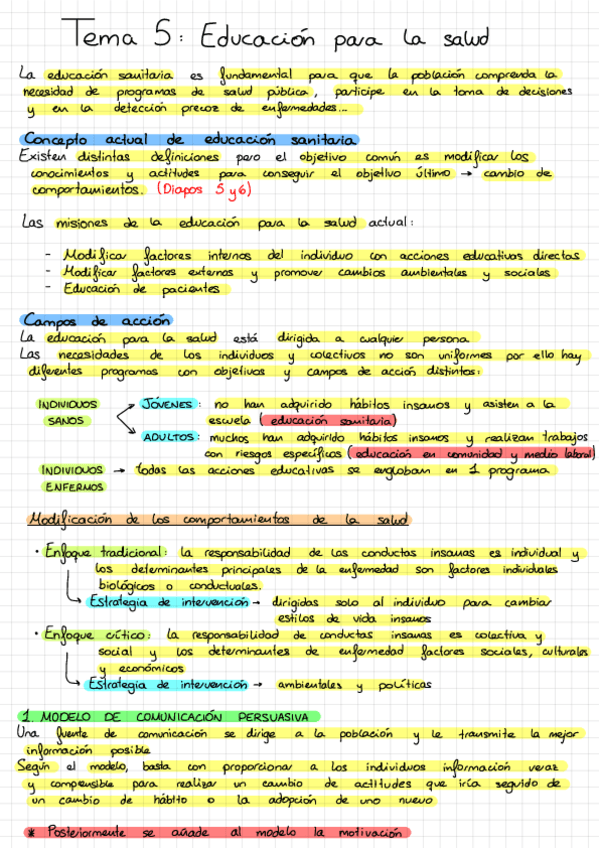 Tema 5: Educación para la salud
La educación sanitaria es fundamental para que la población comprenda la
necesidad de programas de salud pública, participe en la toma de decisiones
y en la detección precoz de enfermedades...
Concepto actual de educación sanitaria
Existen distintas definiciones pero el objetivo común es modificar los
conocimientos y actitudes para conseguir el objetivo último → cambio de
comportamientos. (Diapos 5 y 6)
Las misiones de la educación para la salud actual:
- Modificar factores internos del individuo con acciones educativas directas
- Modificar factores externos y promover cambios ambientales y sociales
- Educación de pacientes
Campos de acción
La educación para la salud está dirigida a cualquier persona.
Las necesidades de los individuos y colectivos no son uniformes por ello hay
diferentes programas con objetivos y campos de acción distintos:
INDIVIDUOS SANOS
JÓVENES: no han adquirido hábitos insanos y asisten a la
escuela (educación sanitaria)
ADULTOS: muchos han adquirido hábitos insanos y realizan trabajos
con riesgos específicos (educación en comunidad y medio laboral)
INDIVIDUOS → todas las acciones educativas se engloban en 1 programa
ENFERMOS
Modificación de los comportamientos de la salud
· Enfoque tradicional: la responsabilidad de las conductas insanas es individual y
los determinantes principales de la enfermedad son factores individuales
biológicos o conductuales.
Estrategia de intervención → dirigidas solo al individuo para cambiar
estilos de vida insanos
· Enfoque crítico: la responsabilidad de conductas insanas es colectiva y
social y los determinantes de enfermedad factores sociales, culturales
y económicos
Estrategia de intervención → ambientales y políticas
1. MODELO DE COMUNICACIÓN PERSUASIVA
Una fuente de comunicación se dirige a la población y le transmite la mejor
información posible
Según el modelo, basta con proporcionar a los individuos información veraz
y compensible para realizar un cambio de actitudes que iría seguido de
un cambio de hábito o la adopción de uno nuevo
* Posteriormente se añade al modelo la motivación